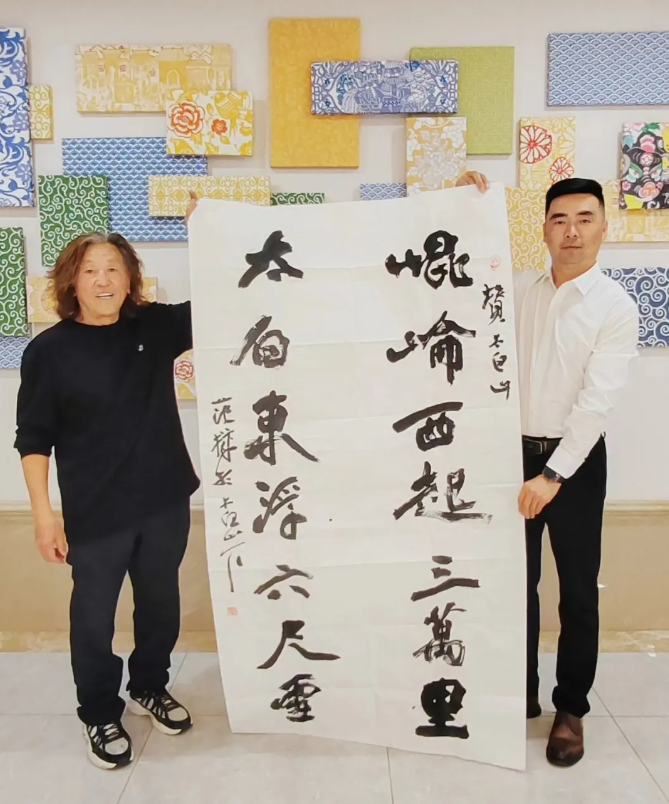 贊太白山
崐崘西起三萬里
太白東浮六尺雪
范 於太白山下